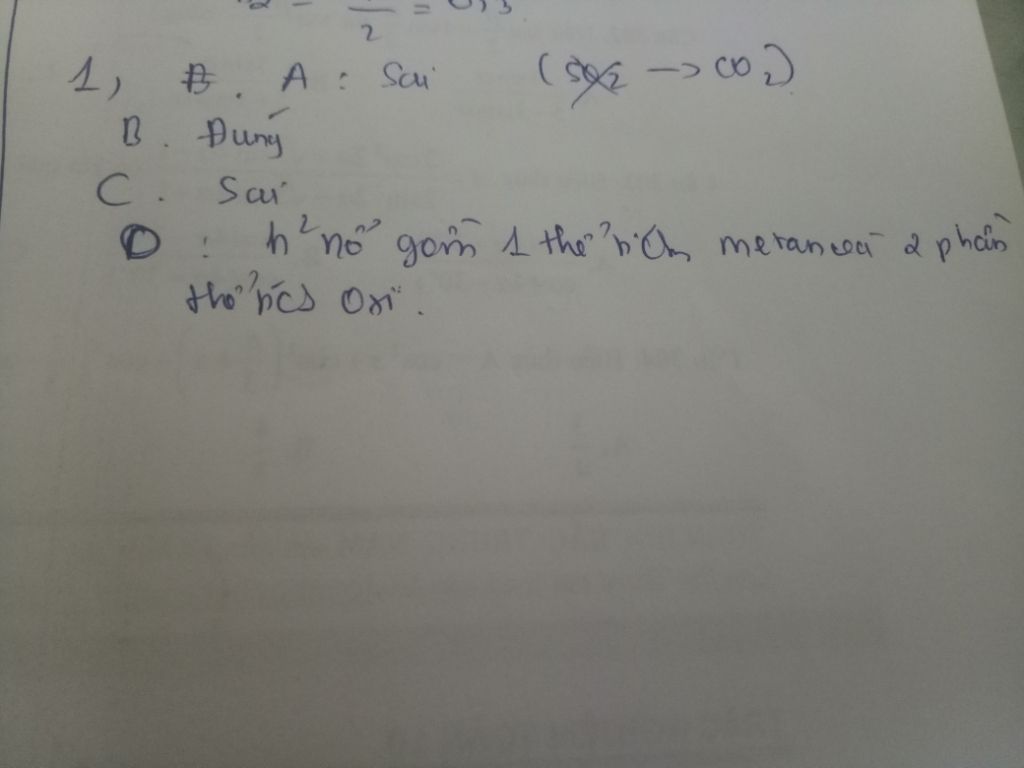 2 = 0,3
1, B. A : Sai (SO2 → CO2)
B. Đúng
C. Sai
D : h² nổ gồm 1 thể tích metan và 2 phần
thể tích Oxi.